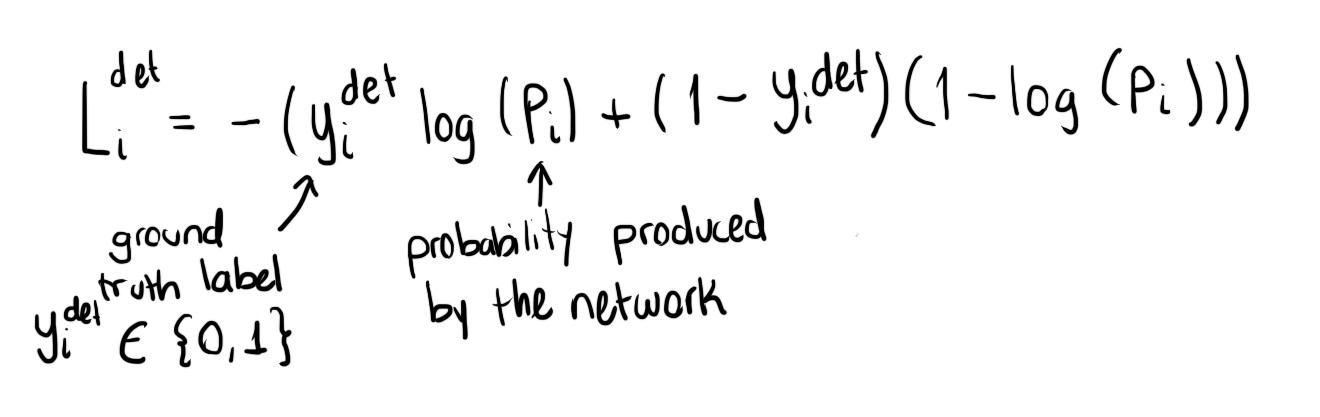 L_i^det = - (y_i^det log (P_i) + (1 - y_i^det)(1 - log (P_i)))
ground
truth label
y_i^det ∈ {0,1}
probability produced
by the network